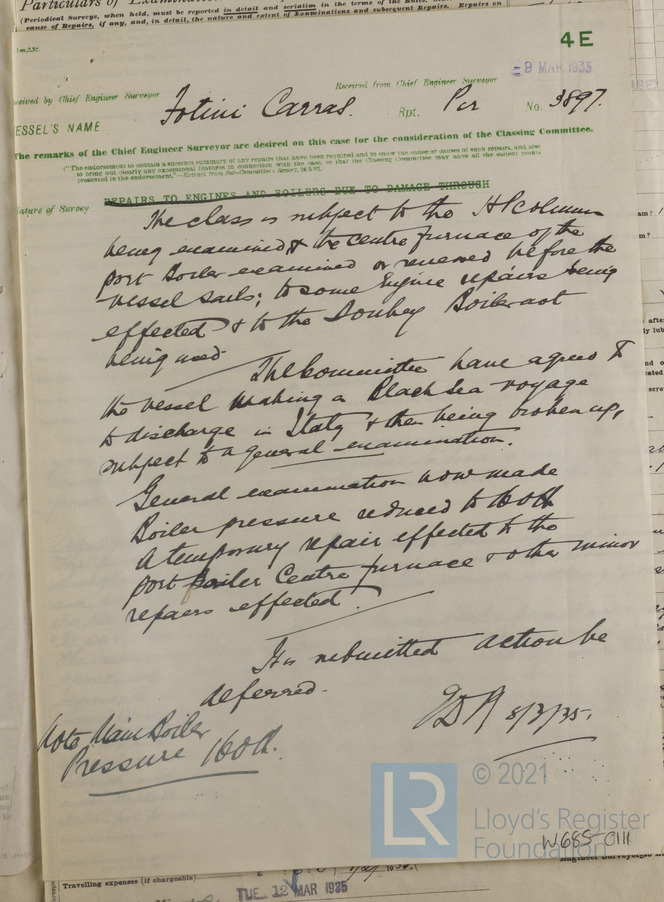 Particulars of Examination
(Periodical Surveys, when held, must be reported in detail and seriatim in the terms of the Rules. Repairs on
cause of Repairs, if any, and, in detail, the nature and extent of Examinations and subsequent Repairs.
4 E
9 MAR 1935
Received from Chief Engineer Surveyor
eceived by Chief Engineer Surveyor
ESSEL'S NAME Fotini Carras. Rpt. Pir No. 3897.
The remarks of the Chief Engineer Surveyor are desired on this case for the consideration of the Classing Committee.
"The endorsement to contain a succinct summary of any repairs that have been required and to show the cause or causes of such repairs, and also
to bring out clearly any exceptional features in connection with the case, so that the Classing Committee may have all the salient points
presented in the endorsement."—Extract from Sub-Committee's Report,
REPAIRS TO ENGINES AND BOILERS DUE TO DAMAGE THROUGH
ature of Survey
The class is subject to the HP Column
being examined & the centre furnace of the
port Boiler examined or renewed before the
vessel sails; to some Engine repairs being
effected & to the Donkey Boiler not
being used
The Committee have agreed to
the vessel making a Black Sea voyage
to discharge in Italy & then being broken up,
subject to a general examination.
General examination now made
Boiler pressure reduced to 160 lb
A temporary repair effected to the
port Boiler Centre furnace & other minor
repairs effected.
It is submitted action be
deferred.
8/3/35.
Note Main Boiler
Pressure 160 lb.
© 2021
LR
Lloyd's Register
Foundation
W685-0111
Travelling expenses (if chargeable)
TUE. 12 MAR 1935